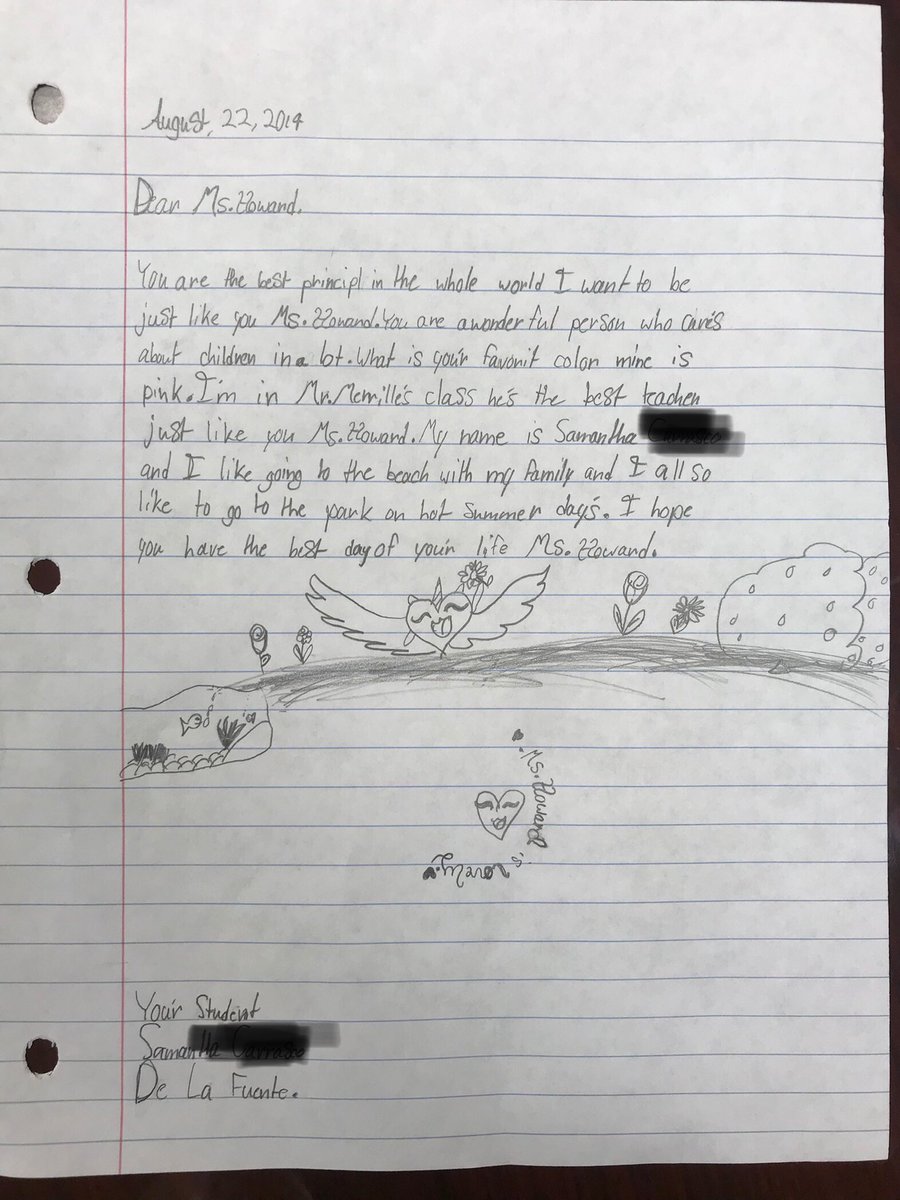 August, 22, 2019
Dear Ms. Howard.
You are the best principl in the whole world I want to be
just like you Ms. Howard. You are a wonderful person who cares
about children in a lot. What is your favorit color mine is
pink. I'm in Mr. Merrille's class he's the best teacher
just like you Ms. Howard. My name is Samantha
and I like going to the beach with my family and I all so
like to go to the park on hot summer day's. I hope
you have the best day of your life Ms. Howard.
Ms. Howard
Your Student
Samantha
De La Fuente.